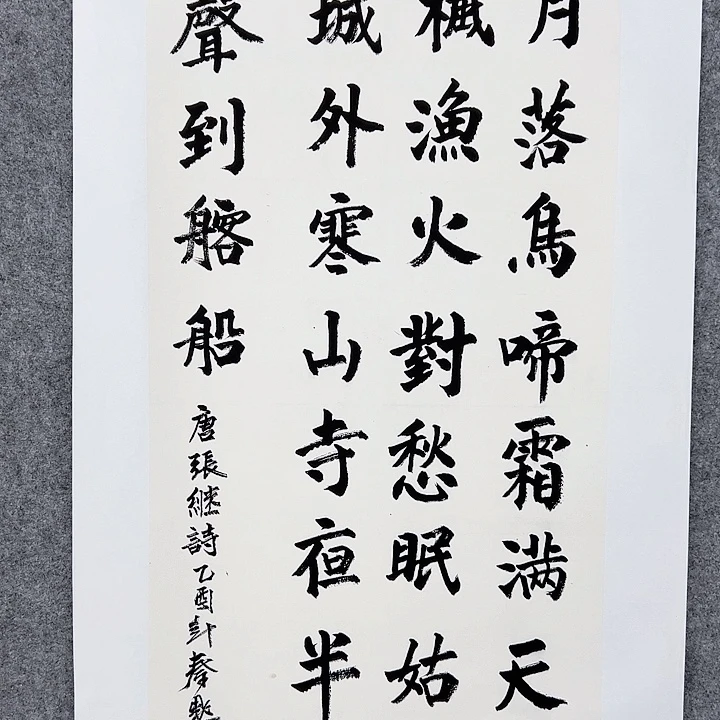 月落烏啼霜满天
楓漁火對愁眠姑
城外寒山寺亱半
聲到船
唐張継詩乙酉